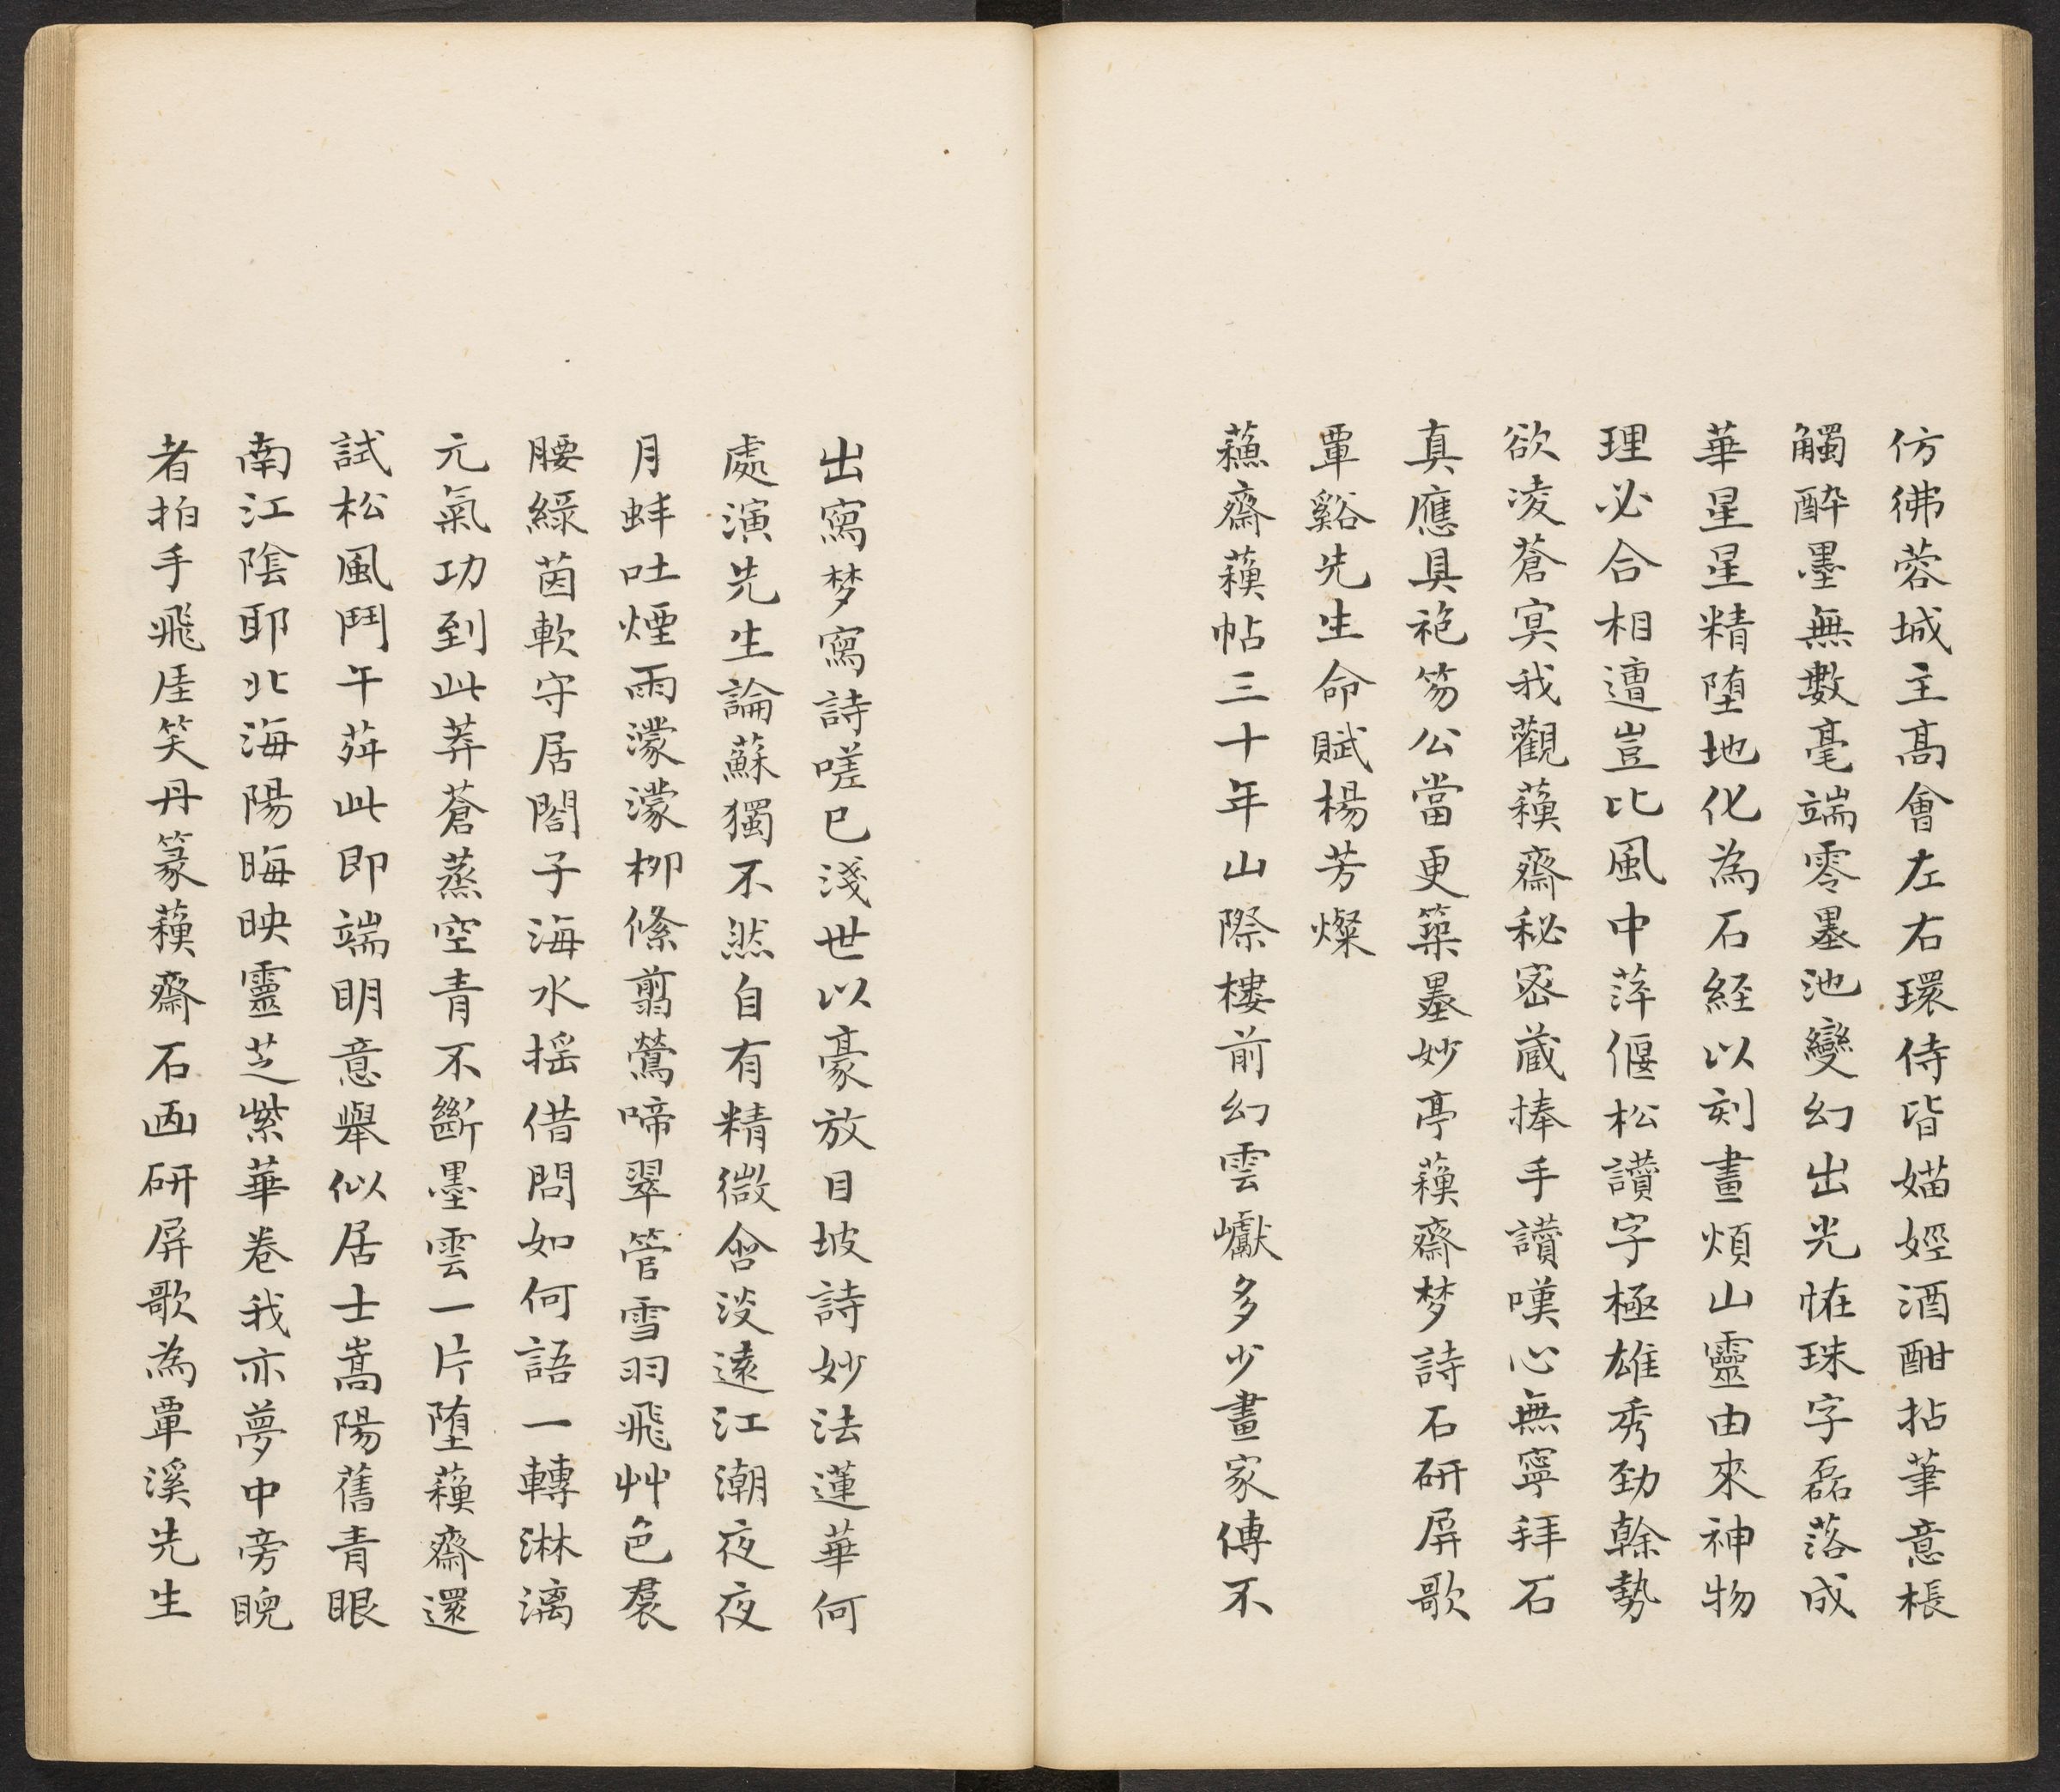 仿彿蓉城主高會左右環侍皆媌娙酒酣拈筆意棖
觸酔墨無數毫端零墨池變幻出光怪珠字磊落成
華星星精堕地化為石経以刻畫煩山靈由來神物
理必合相遭豈比風中萍偃松讚字極雄秀勁榦勢
欲凌蒼冥我觀蘓齋秘密蔵捧手讚嘆心無寧拜石
真應具袍笏公當更築墨妙亭蘓齋梦詩石研屏歌
覃谿先生命賦楊芳燦
蘓齋蘓帖三十年山際樓前幻雲巘多少畫家傳不
出寫梦寫詩嗟已淺世以豪放目坡詩妙法蓮華何
處演先生論蘇獨不然自有精微含淡遠江潮夜夜
月蚌吐煙雨濛濛柳絛翦鶯啼翠管雪羽飛艸色裠
腰綠茵軟守居閣子海水揺借問如何語一轉淋漓
元氣功到此莽蒼蒸空青不斷墨雲一片堕蘓齋還
試松風鬥午荈此即端明意舉似居士嵩陽舊青眼
南江陰耶北海陽晦映靈芝紫華卷我亦夢中旁睨
者拍手飛厓笑丹篆蘓齋石画研屏歌為覃溪先生